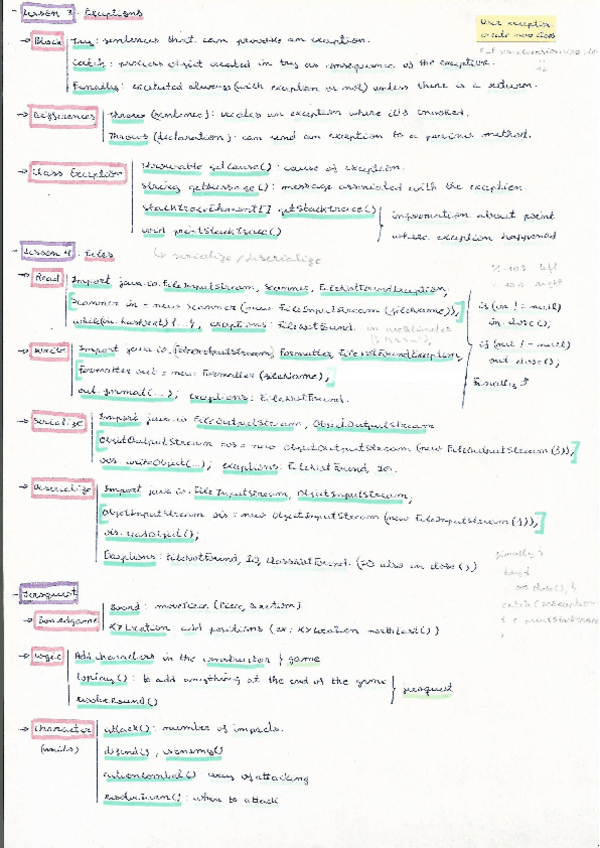 - Lesson 3. Exceptions
User exception:
create new class
→ Block | Try: sentences that can provoke an exception.
Catch: process object created in try as consequence of the exception.
Finally: executed always (with exception or not) unless there is a return.
→ Differences | Throw (sentence): creates an exception where it's invoked.
Throws (declaration): can send an exception to a previous method.
→ Class Exception | Throwable getCause(): cause of exception.
String getMessage(): message associated with the exception.
StackTraceElement[] getStackTrace()
void printStackTrace()
information about point
where exception happened
- Lesson 4. Files
↳ serialize / deserialize
→ Read | Import java.io.FileInputStream, Scanner, FileNotFoundException;
Scanner in = new Scanner (new FileInputStream (filename));
while(in.hasNext) {...}, exceptions: FileNotFound.
if (in != null)
in.close();
if (out != null)
out.close();
Finally }
→ Write | Import java.io.FileOutputStream, Formatter, FileNotFoundException;
Formatter out = new Formatter (filename);
out.format(...); exceptions: FileNotFound.
→ Serialize | Import java.io FileOutputStream, ObjectOutputStream
ObjectOutputStream oos = new ObjectOutputStream (new FileOutputStream (f));
oos.writeObject(...); exceptions: FileNotFound, IO.
→ Deserialize | Import java.io. FileInputStream, ObjectInputStream;
ObjectInputStream ois = new ObjectInputStream (new FileInputStream (f));
ois.readObject();
Exceptions: FileNotFound, IO, ClassNotFound. (IO also in close())
finally {
try {
oos.close(); }
catch (IOException
{ e.printStackTrace
}
→ Boardgame | Board: movePiece (Piece,
XYLocation add positions (ex: XYLocation northEast())
→ Logic | Add characters in the constructor } game
to add anything at the end of the game
resolveRound()
→ Character | attack(): number of impacts.
(units)
defend(),
actionCombat() way of attacking
resolveTurn(): where to attack